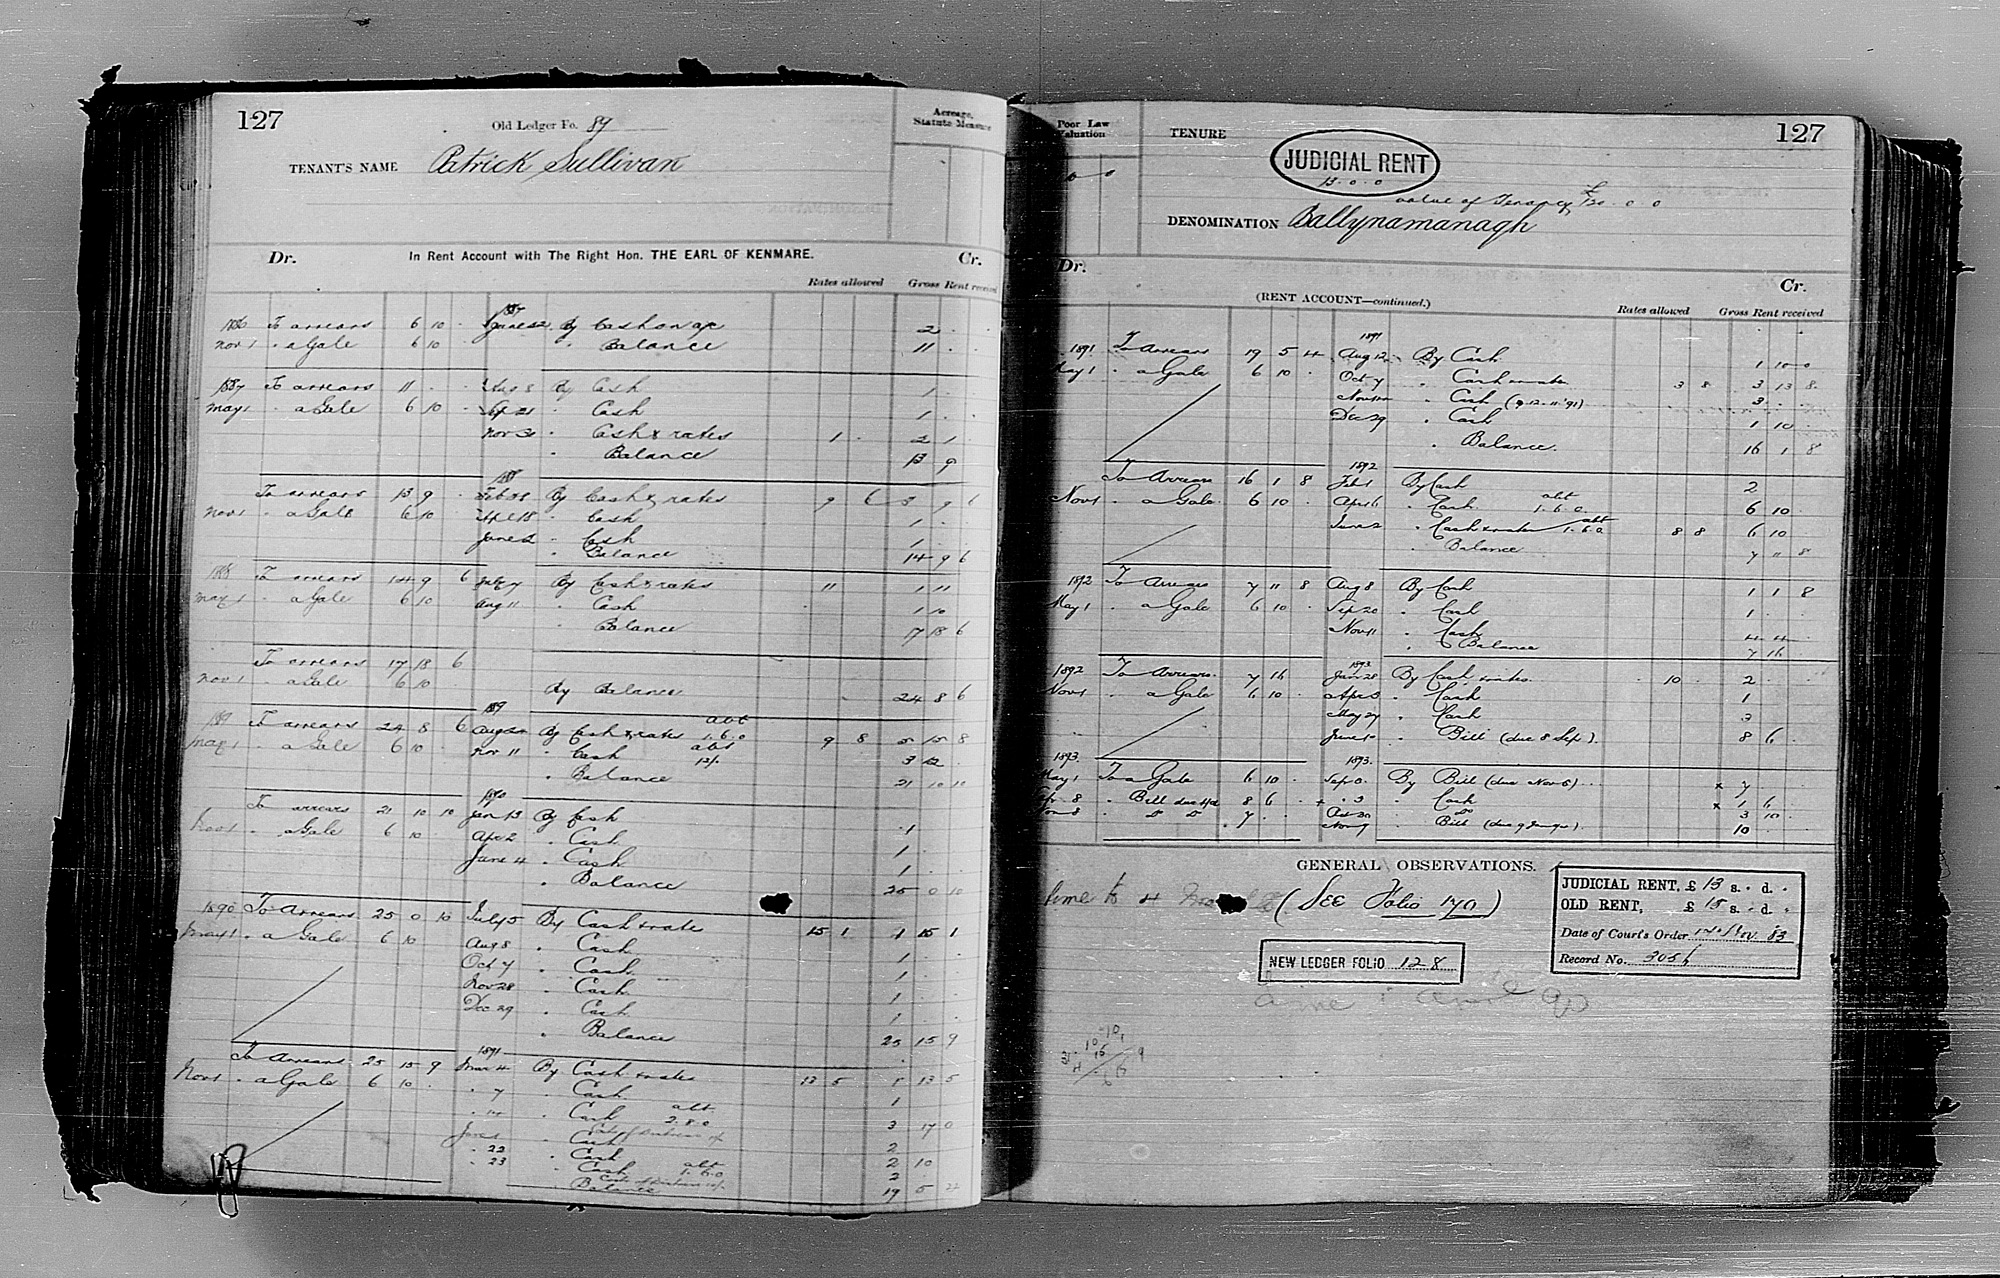 127
Old Ledger Fo. 89
Acreage, Statute Measure
TENANT'S NAME Patrick Sullivan
Dr. In Rent Account with The Right Hon. THE EARL OF KENMARE. Cr.
Rates allowed Gross Rent received
1886 To arrears 6 10 . 1887 June 2 By Cash on a/c 2 . .
Nov 1 " a Gale 6 10 " Balance 11 . .
1887 To arrears 11 . . Aug 8 By Cash 1 . .
May 1 " a Gale 6 10 Sep 21 " Cash 1 . .
Nov " Cash & rates 1 . 2 1
" Balance 13 9
To arrears 13 9 . Feb By Cash & rates 9 6 3 9 6
Nov 1 " a Gale 6 10 Apl 18 " Cash 1 . .
June 2 " Cash 1 . .
" Balance 14 9 6
1888 To arrears 14 9 6 July 7 By Cash & rates 11 1 11
May 1 " a Gale 6 10 Aug 11 " Cash 1 10
" Balance 17 18 6
To arrears 17 18 6
Nov 1 " a Gale 6 10 By Balance 24 8 6
1889
1889 To arrears 24 8 6 Aug By Cash & rates abt 1.6.0 9 8 5 15 8
May 1 " a Gale 6 10 Nov 11 " Cash abt 12/. 3 12
" Balance 21 10 10
1890
To arrears 21 10 10 Jan 13 By Cash 1
Nov 1 " a Gale 6 10 Apr 2 " Cash 1
June 4 " Cash 1
" Balance 25 0 10
1890 To Arrears 25 0 10 July 5 By Cash & rates 15 1 1 15 1
May 1 " a Gale 6 10 Aug 8 " Cash 1
Oct 7 " Cash 1
Nov 28 " Cash 1
Dec 29 " Cash 1
" Balance 25 15 9
1891
To Arrears 25 15 9 Mar 4 By Cash & rates 13 5 1 13 5
Nov 1 " a Gale 6 10 " 7 " Cash 1
" 14 " Cash abt 2.8.0 3 17 0
June " Cash 2
" 22 " Cash 2 10
" 23 " Cash abt 1.6.0 2
" Balance 19 5 4
Poor Law Valuation
TENURE
127
JUDICIAL RENT
13.0.0
value of Tenancy £120.0.0
DENOMINATION Ballynamanagh
Dr. Cr.
(RENT ACCOUNT—continued.)
Rates allowed Gross Rent received
1891
1891 To Arrears 19 5 4 Aug 12 By Cash 1 10 0
May 1 " a Gale 6 10 . Oct 7 " Cash & rates 3 8 3 13 8
Nov " Cash (9.12.11.'91) 3 . .
Dec 29 " Cash 1 10
" Balance 16 1 8
1892
To Arrears 16 1 8 Feb 1 By Cash 2
Nov 1 " a Gale 6 10 . Apr 6 " Cash abt 1.6.0 6 10
June 2 " Cash & rates abt 1.6.0 8 8 6 10
" Balance 7 11 8
1892 To Arrears 7 11 8 Aug 8 By Cash 1 1 8
May 1 " a Gale 6 10 . Sep 20 " Cash 1
Nov 11 " Cash 4 4
" Balance 7 16
1893
1892 To Arrears 7 16 Jan 28 By Cash & rates 10 . 2
Nov 1 " a Gale 6 10 . Apr 3 " Cash 1
May 27 " Cash 3
June " Bill (due 8 Sep). 8 6
1893. 1893.
May 1 To a Gale 6 10 . Sep By Bill (due Nov 6) x 7
Sepr. 8 " Bill due 8 6 . " Cash x 1 6
Nov 8 " Do Do 7 . Oct 30 " Do 3 10
Nov " Bill (due 9 ). 10
GENERAL OBSERVATIONS.
(See Folio 170)
NEW LEDGER FOLIO 128
JUDICIAL RENT, £ 13 s. . d. .
OLD RENT, £ 15 s. . d. .
Date of Court's Order Nov. 83
Record No.